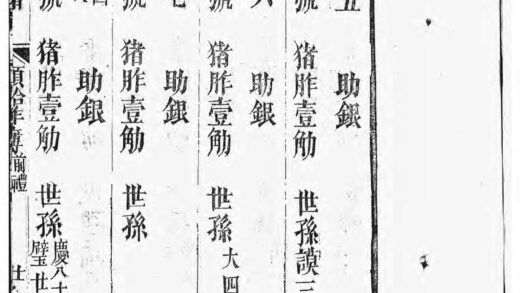 五 助銀
號 猪胙壹觔 世孫謨三
六 助銀
號 猪胙壹觔 世孫大四
七 助銀
號 猪胙壹觔 世孫
助銀
號 猪胙壹觔 世孫慶八十
璧世
前禮